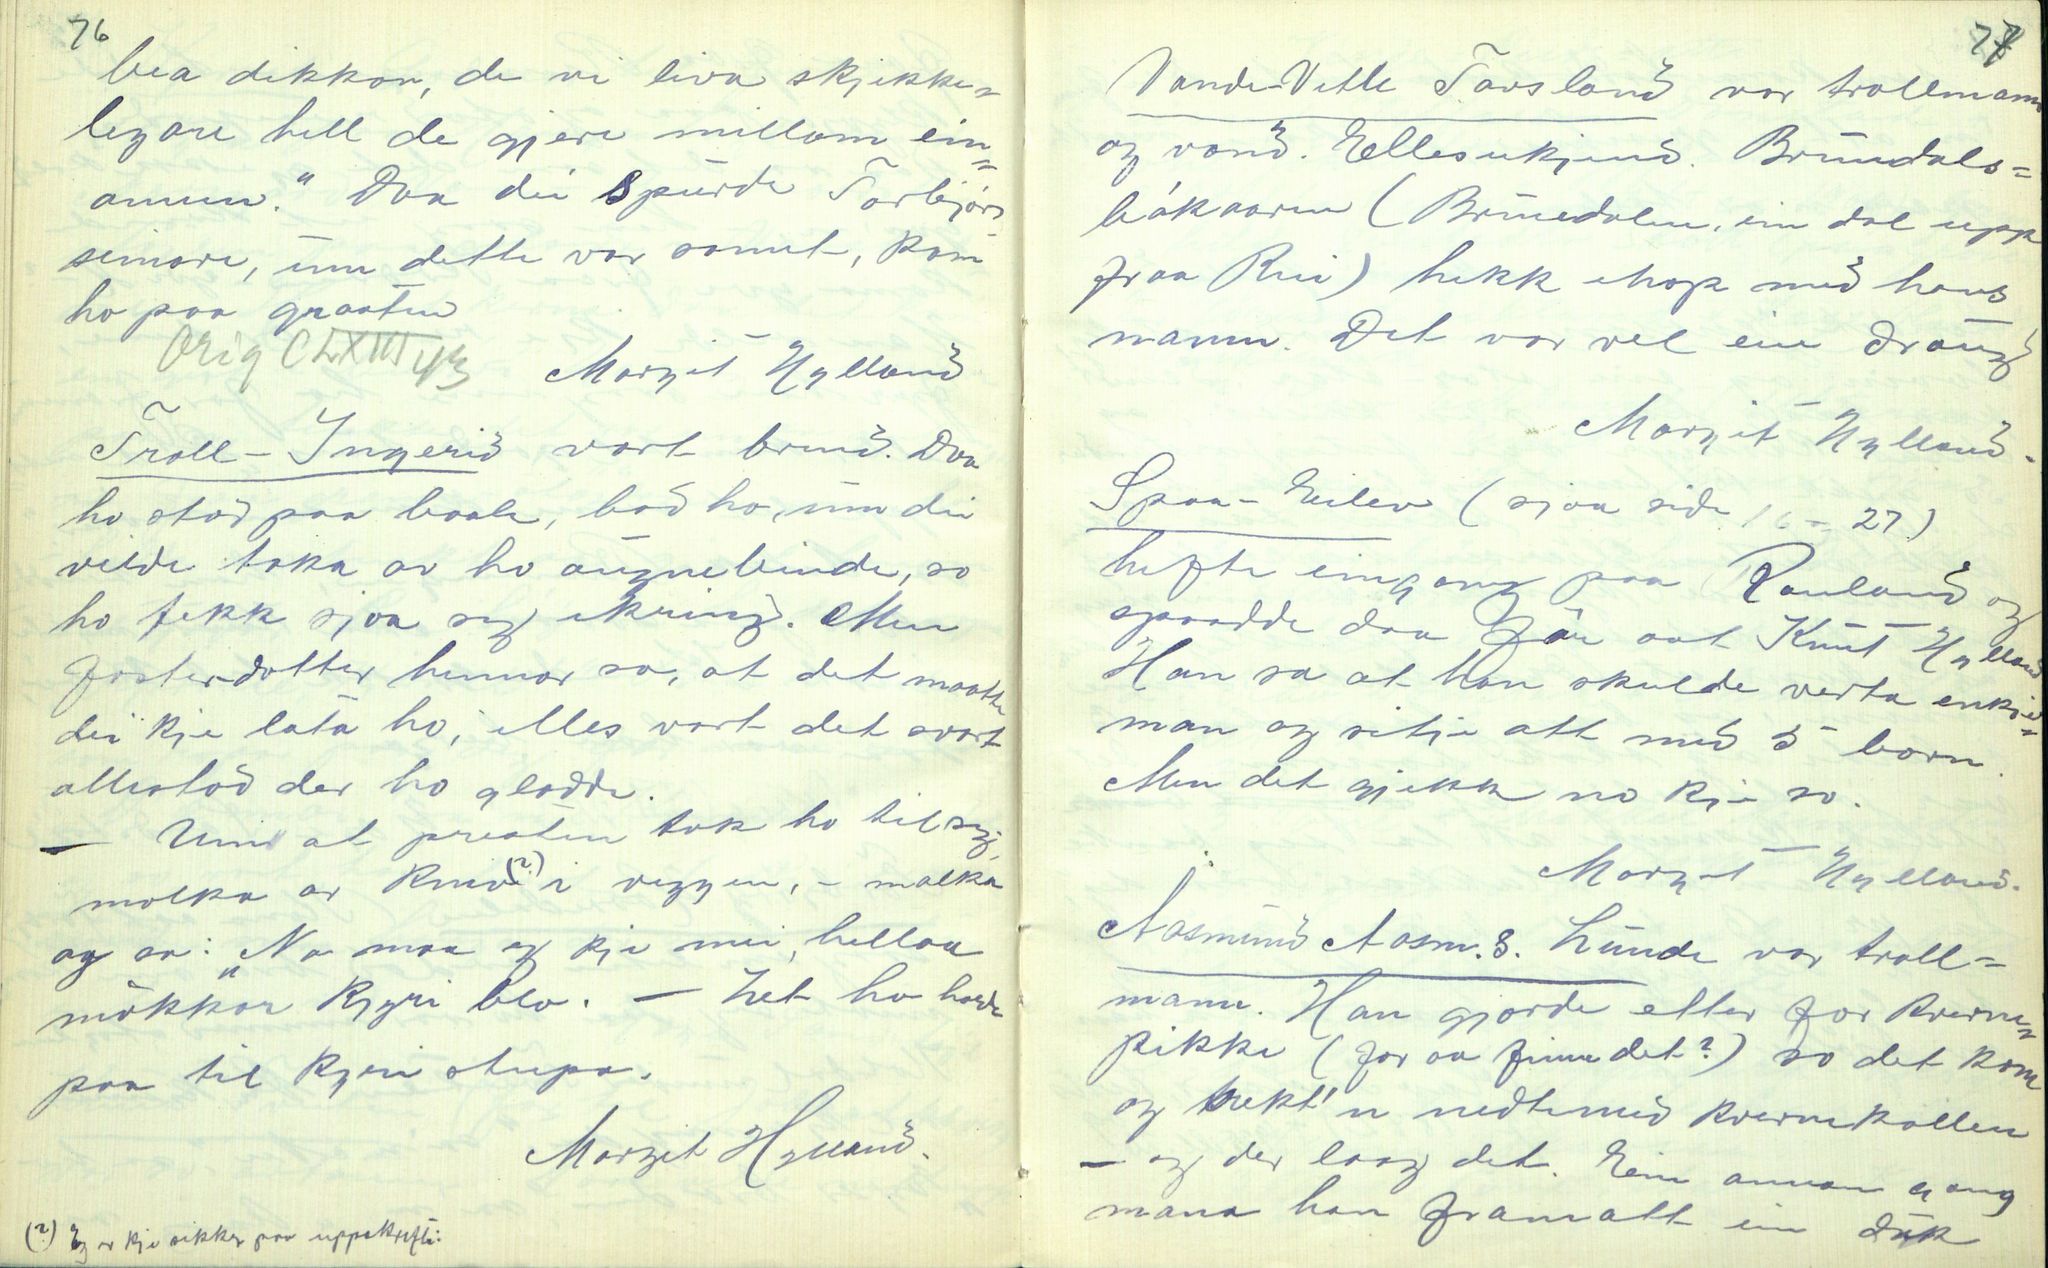 76
bea dikkon, de vi liva skjekke=
legare hell de gjere millom ein=
annan." Daa dei spurde Torbjør
seinare, um dette var sannt, kom
ho paa graaten
Orig CLXIII 43
Margit Hylland
Troll-Ingerid vart brend. Daa
ho stod paa baale, bad ho, um dei
vilde taka av ho augnebinde, so
ho fekk sjaa seg ikring. Men
fosterdotter hennar sa, at det maatte
dei kje lata ho, elles vart det svart
allestad der ho gladde.
— Um at presten tok ho til seg,
molka av kniv (?) i veggen, - molka
og sa: "No maa eg kje mei, hellaa
mökkar kjyri blo. — Let ho halde
paa til kjyri stupa.
Margit Hylland.
(?) Eg er kje sikker paa uppskrifti:
77
Vande-Vetle Farsland var trollmann
og vond. Elles ukjend. Bruudals=
bákaaren (Bruedalen, ein dal upp
fraa Rui) hekk ihop med hans
mann. Det var vel ein draug
Margit Hylland.
Spaa-Eilev (sjaa side 16 - 27)
hefte eingong paa Rauland og
spaadde daa fär aat Knut Hylland
Han sa at han skulde verta enkje=
man og sitje att med 5 born.
Men det gjekk no kje so.
Margit Hylland.
Aasmund Aasm.s. Lunde var troll=
mann. Han gjorde etter for kverne=
pikke (for aa finne det?) so det kom
og hekt'n nedtemed kvernekallen
— og der laag det. Ein annan gong
mana han framatt ein duk